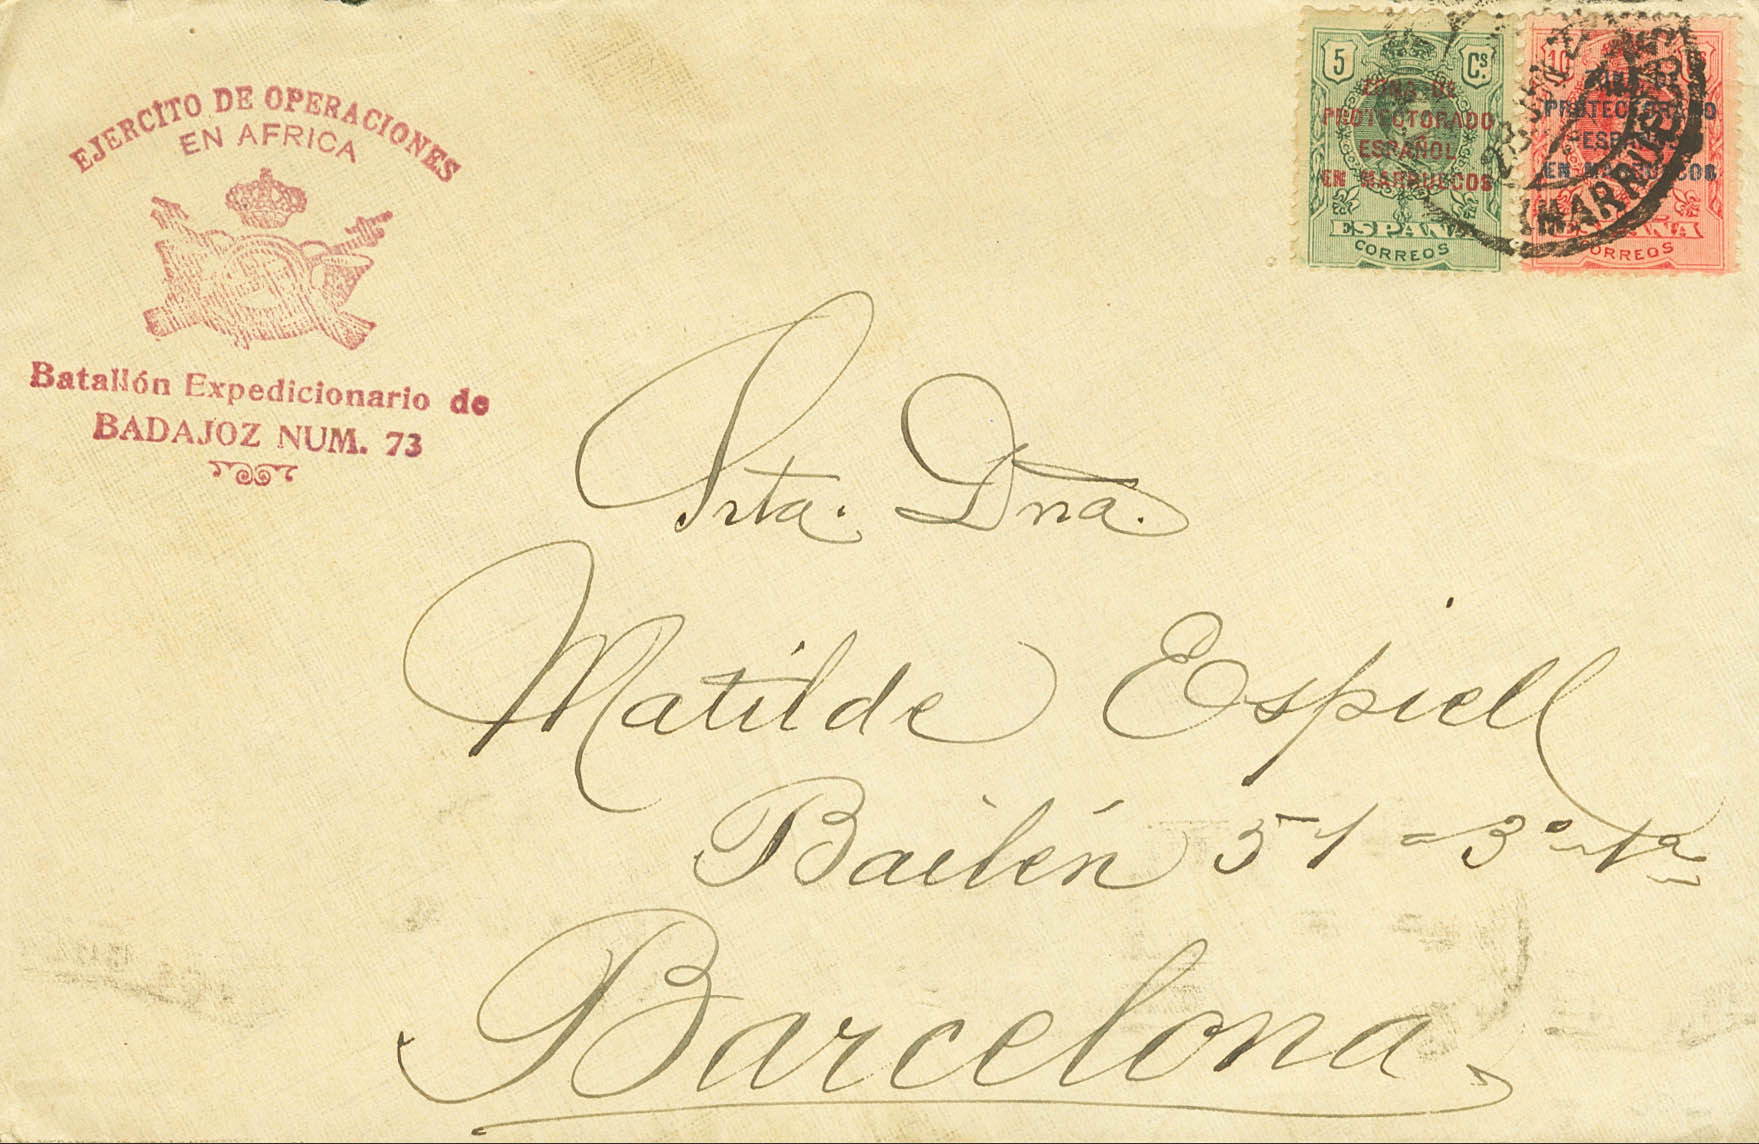 EJERCITO DE OPERACIONES
EN AFRICA
Batallón Expedicionario de
BADAJOZ NUM. 73
5 Cs.
ZONA DE
PROTECTORADO
ESPAÑOL
EN MARRUECOS
ESPAÑA
CORREOS
10
PROTECTORADO
ESPAÑOL
EN MARRUECOS
ESPAÑA
CORREOS
(MARRUECOS)
Srta. Dna.
Matilde Espiell
Bailén 51-3º-1ª
Barcelona